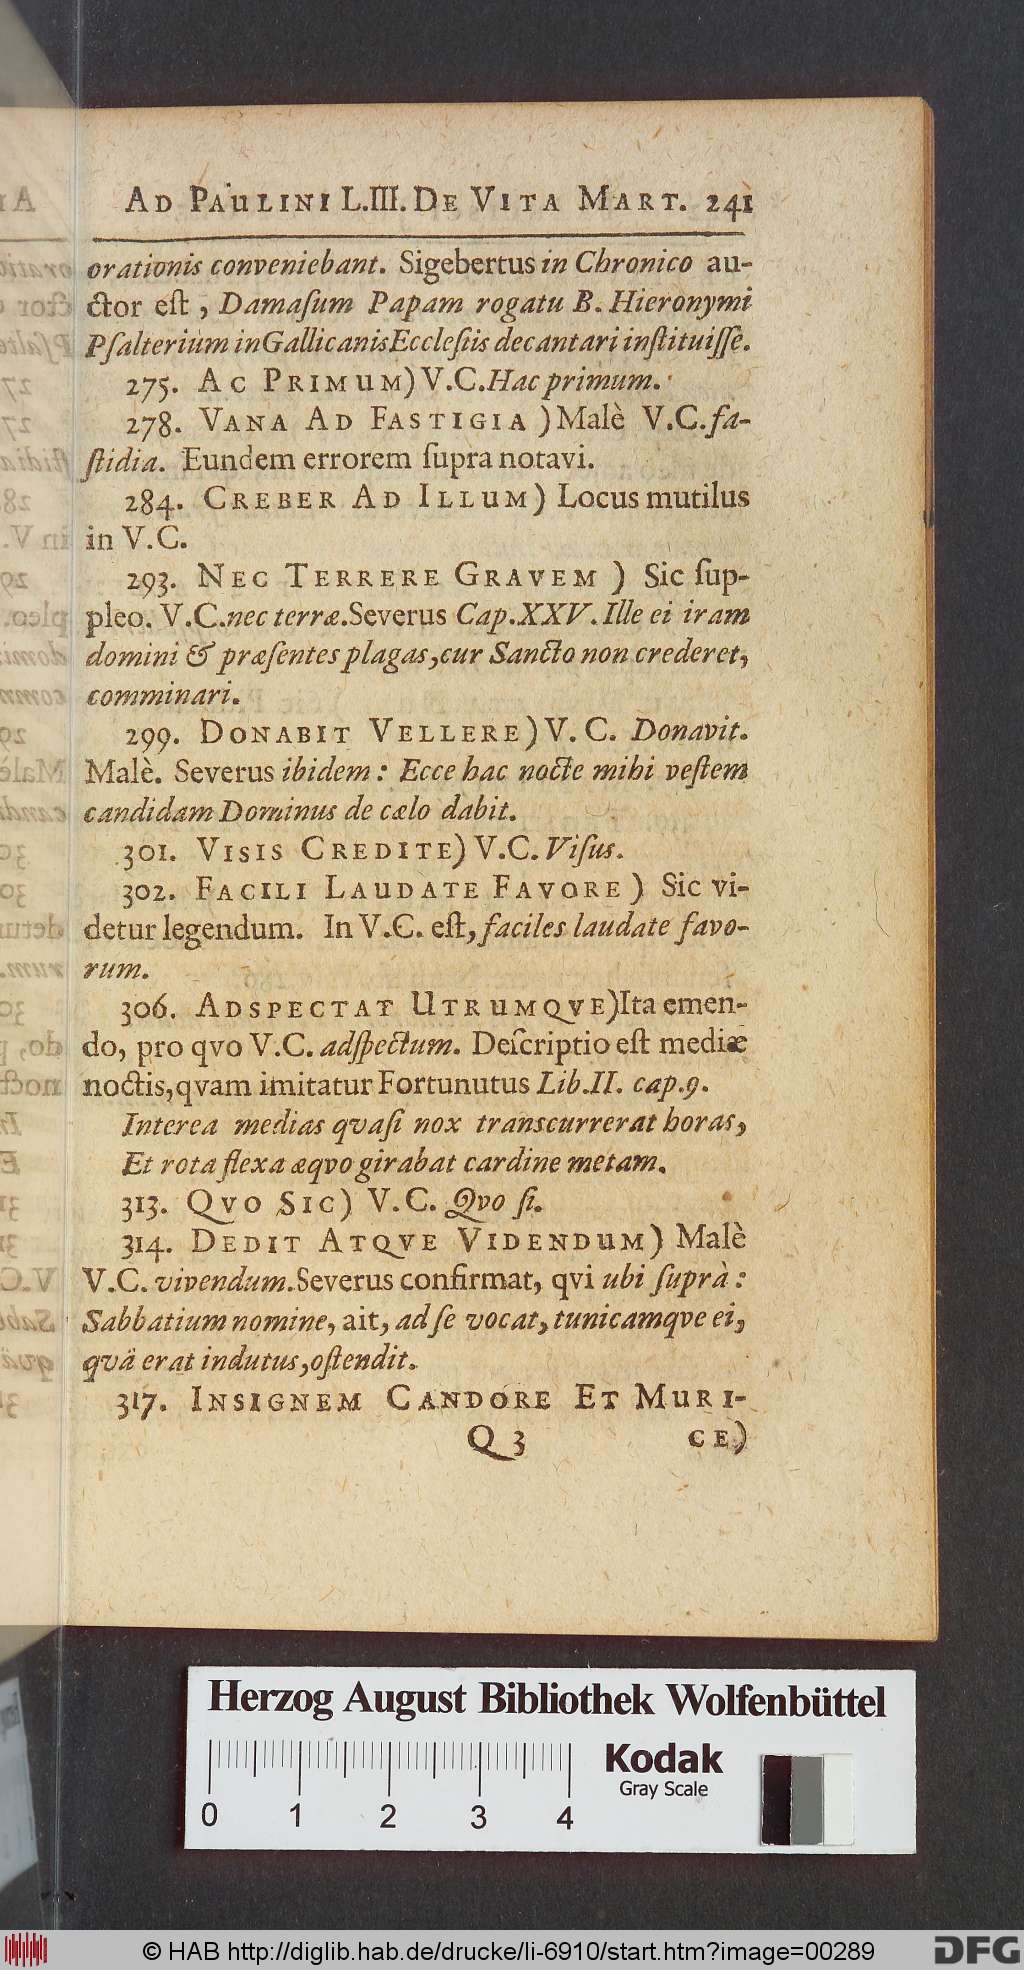 AD PAULINI L.III. DE VITA MART. 241
orationis conveniebant. Sigebertus in Chronico au-
ctor eſt, Damaſum Papam rogatu B. Hieronymi
Pſalterium in Gallicanis Eccleſiis decantari inſtituiſſe.
275. AC PRIMUM) V.C. Hac primum.
278. VANA AD FASTIGIA) Malè V.C. fa-
ſtidia. Eundem errorem ſupra notavi.
284. CREBER AD ILLUM) Locus mutilus
in V.C.
293. NEC TERRERE GRAVEM) Sic ſup-
pleo. V.C. nec terræ. Severus Cap. XXV. Ille ei iram
domini & præſentes plagas, cur Sancto non crederet,
comminari.
299. DONABIT VELLERE) V.C. Donavit.
Malè. Severus ibidem: Ecce hac nocte mihi veſtem
candidam Dominus de cælo dabit.
301. VISIS CREDITE) V.C. Viſus.
302. FACILI LAUDATE FAVORE) Sic vi-
detur legendum. In V.C. eſt, faciles laudate favo-
rum.
306. ADSPECTAT UTRUMQVE) Ita emen-
do, pro qvo V.C. adſpectum. Deſcriptio eſt mediæ
noctis, qvam imitatur Fortunutus Lib. II. cap. 9.
Interea medias qvaſi nox transcurrerat horas,
Et rota flexa æqvo girabat cardine metam.
313. QVO SIC) V.C. Qvo ſi.
314. DEDIT ATQVE VIDENDUM) Malè
V.C. vivendum. Severus confirmat, qvi ubi ſuprà:
Sabbatium nomine, ait, ad ſe vocat, tunicamqve ei,
qvâ erat indutus, oſtendit.
317. INSIGNEM CANDORE ET MURI-
Q 3 CE)
Herzog August Bibliothek Wolfenbüttel
Kodak
Gray Scale
0 1 2 3 4
© HAB http://diglib.hab.de/drucke/li-6910/start.htm?image=00289
DFG